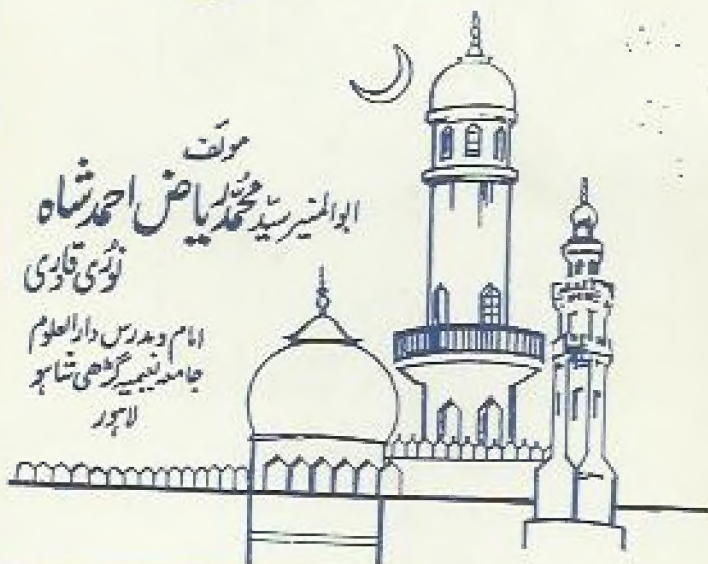 مولف
ابوالمنیر سید محمد ریاض احمد شاہ
نوری قادری
امام و مدرس دارالعلوم
جامعہ نعیمیہ گڑھی شاہو
لاہور